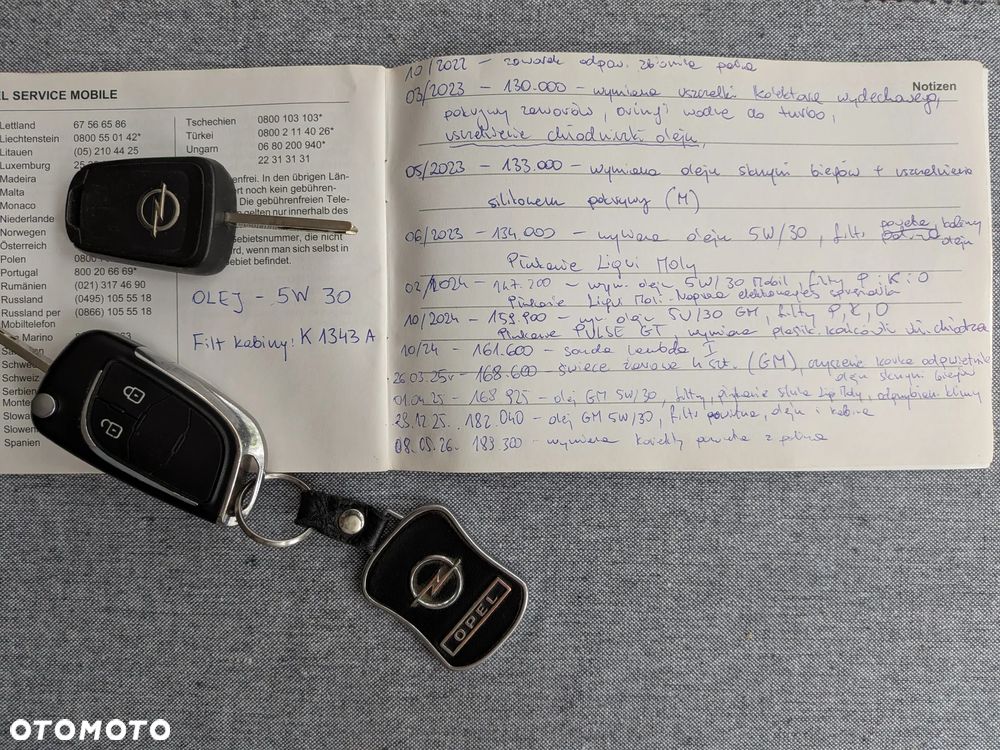 EL SERVICE MOBILE
Lettland 67 56 65 86
Liechtenstein 0800 55 01 42*
Litauen (05) 210 44 25
Luxemburg
Madeira
Malta
Monaco
Niederlande
Norwegen
Österreich
Polen 0800
Portugal 800 20 66 69*
Rumänien (021) 317 46 90
Russland (0495) 105 55 18
Russland per (0866) 105 55 18
Mobiltelefon
San Marino
Schweiz
Schweiz
Serbien
Monte
Slowa
Slowen
Spanien
Tschechien 0800 103 103*
Türkei 0800 2 11 40 26*
Ungarn 06 80 200 940*
22 31 31 31
enfrei. In den übrigen Län-
ert noch kein gebühren-
Die gebührenfreien Tele-
gelten nur innerhalb des
ebietsnummer, die nicht
rd, wenn man sich selbst in
ebiet befindet.
OLEJ - 5W 30
Filt kabiny: K 1343 A
Notizen
10/2022 - zaworek odpow. zbiornika paliwa
03/2023 - 130.000 - wymiana uszczelki kolektora wydechowego,
pokrywy zaworów, oringi wodne do turbo,
uszczelnienie chłodniczki oleju,
05/2023 - 133.000 - wymiana oleju skrzyni biegów + uszczelnienie
silikonem pokrywy (M)
06/2023 - 134 000 - wymiana oleju 5W/30, filtr kabiny
oleju
Płukanie Liqui Moly
02/2024 - 147.200 - wym. oleju 5W/30 Mobil, filtry P i K i O
Płukanie Liqui Moli.
10/2024 - 159.900 - wy. oleju 5W/30 GM, filtry P, K, O
Płukanie PULSE GT, wymiana plastik.
10/24 - 161.600 - sonda lambda I
26.03.25r - 168.600 - świece żarowe 4 szt. (GM), czyszczenie korka odpowietrznika
oleju skrzyni biegów
01.04.25 - 168 925 - olej GM 5W/30, filtry, płukanie silnika Liqui Moly, odgrzybianie klimy
23.12.25. 182.040 - olej GM 5W/30, filtr powietrza, oleju i kabina
08.05.26. 189.300 - wymiana
OPEL
OTOMOTO